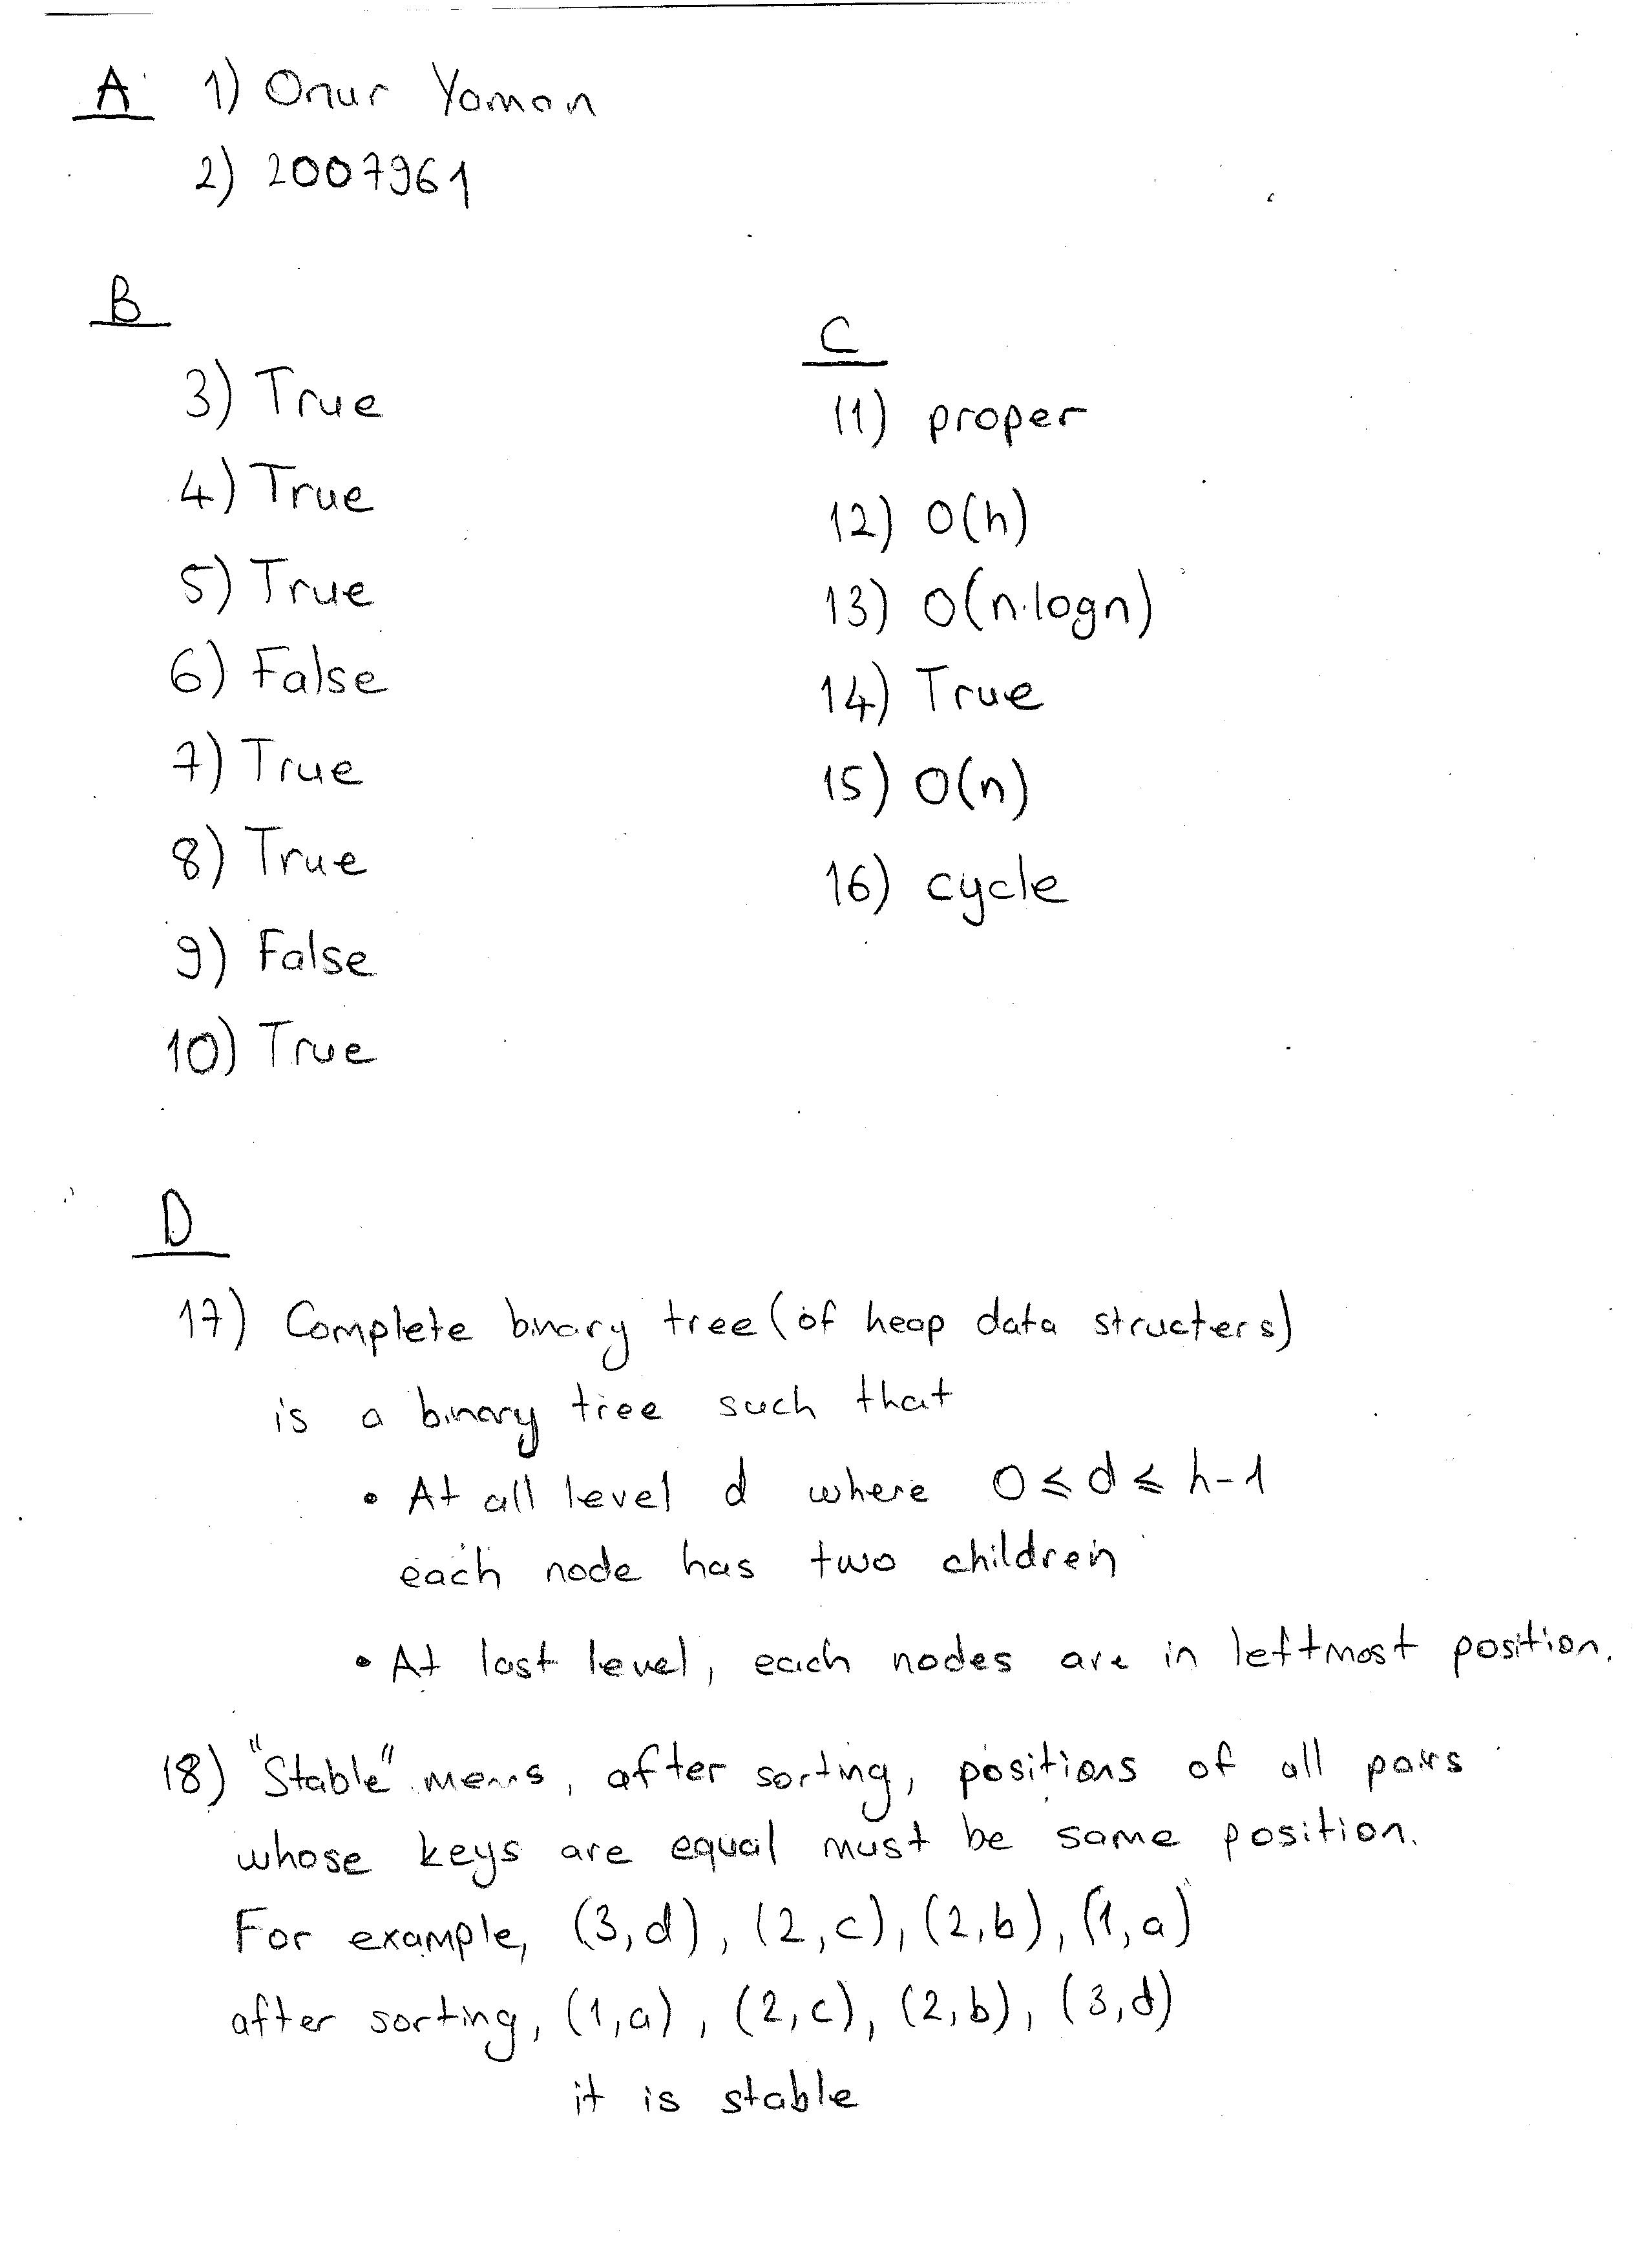 A 1) Onur Yaman
2) 2007961
B
3) True
4) True
5) True
6) False
7) True
8) True
9) False
10) True
C
11) proper
12) O(h)
13) O(n.logn)
14) True
15) O(n)
16) cycle
D
17) Complete binary tree (of heap data structers)
is a binary tree such that
• At all level d where 0 ≤ d ≤ h-1
each node has two children
• At last level, each nodes are in leftmost position.
18) "Stable" means, after sorting, positions of all pairs
whose keys are equal must be same position.
For example, (3,d), (2,c), (2,b), (1,a)
after sorting, (1,a), (2,c), (2,b), (3,d)
it is stable